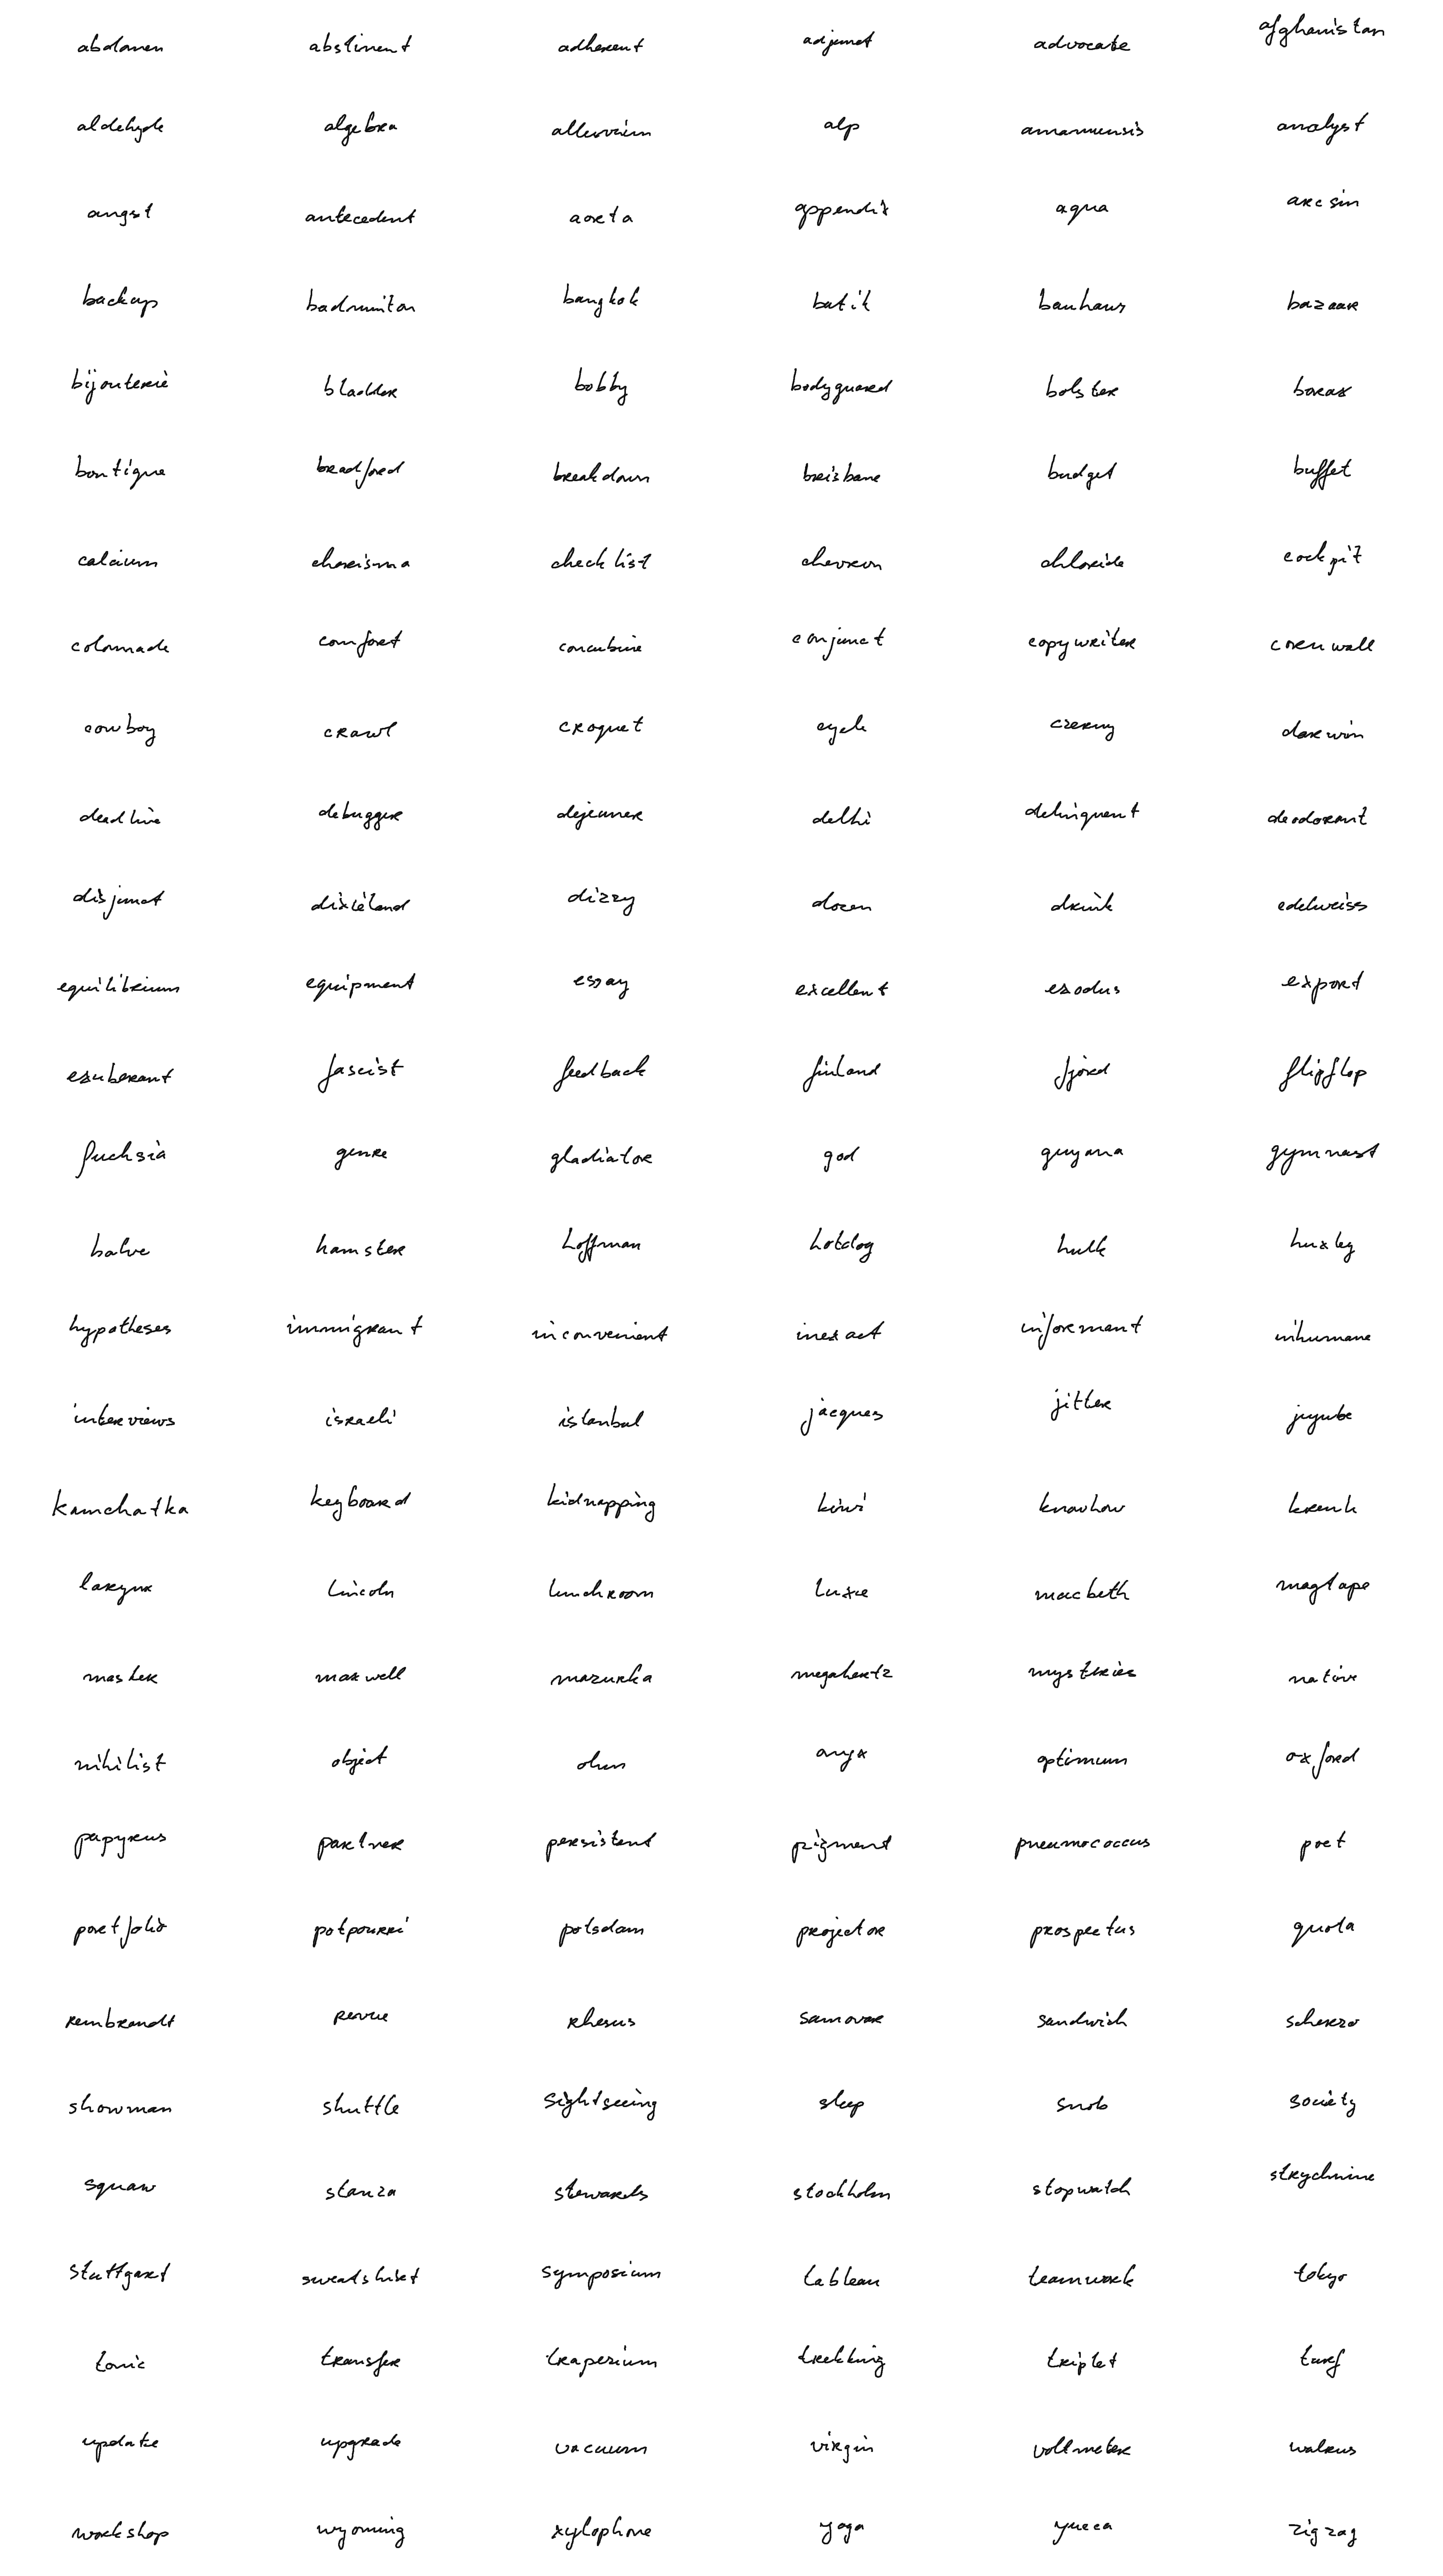 abdomen abstinent adherent adjunct advocate afghanistan
aldehyde algebra alluvium alp amanuensis analyst
angst antecedent aorta appendix aqua arcsin
backup badminton bangkok batik bauhaus bazaar
bijouterie bladder bobby bodyguard bolster borax
boutique bradford breakdown brisbane budget buffet
calcium charisma checklist chevron chloride cockpit
colonnade comfort concubine conjunct copywriter cornwall
cowboy crawl croquet cycle czerny darwin
deadline debugger dejeuner delhi delinquent deodorant
disjunct dixieland dizzy dozen drink edelweiss
equilibrium equipment essay excellent exodus export
exuberant fascist feedback finland fjord flipflop
fuchsia genre gladiator god guyana gymnast
halve hamster hoffman hotdog hulk huxley
hypotheses immigrant inconvenient inexact informant inhumane
interviews israeli istanbul jacques jitter jujube
kamchatka keyboard kidnapping kiwi knowhow
larynx lincoln lunchroom luxe macbeth magtape
master maxwell mazurka megahertz mysteries native
nihilist object ohm onyx optimum oxford
papyrus partner persistent pigment pneumococcus poet
portfolio potpourri potsdam projector prospectus quota
rembrandt revue rhesus samovar sandwich scherzo
showman shuttle sightseeing sleep snob society
squaw stanza stewards stockholm stopwatch strychnine
stuttgart sweatshirt symposium tableau teamwork tokyo
tonic transfer trapezium trekking triplet turf
update upgrade vacuum virgin voltmeter walrus
workshop wyoming xylophone yoga yucca zigzag